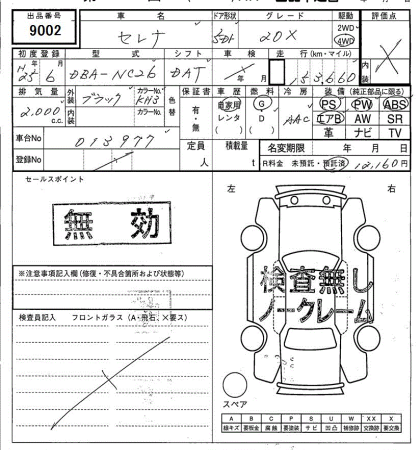 出品番号 車名 ドア形状 グレード 駆動 評価点
9002 セレナ 5D 20X 2WD 4WD
初度登録 型式 シフト 車検 走行(km・マイル) 内装
H25 6 DBA-NC26 DAT 年 月 153,660
排気量 外装 ブラック カラーNo. KH3 色替 保証書 車歴 燃料 冷房 装備(純正部品に限る)
2,000 c.c. 内装 カラーNo. 有・無 自家用 レンタ ( ) G D ( ) AAC PS PW ABS
エアB AW SR
革 ナビ TV
車台No 013977 定員 人 積載量 t 名変期限 年 月 日
登録No R料金 未預託・預託済 12,160円
セールスポイント
無効
左 右
※注意事項記入欄(修復・不具合箇所および状態等)
検査無し
ノークレーム
検査員記入 フロントガラス(A・飛石、×要ス)
スペア
A B C P S U W X XX X
線キズ 要板金 腐蝕 要塗装 サビ 凹凸 補修跡 交換跡 要交換